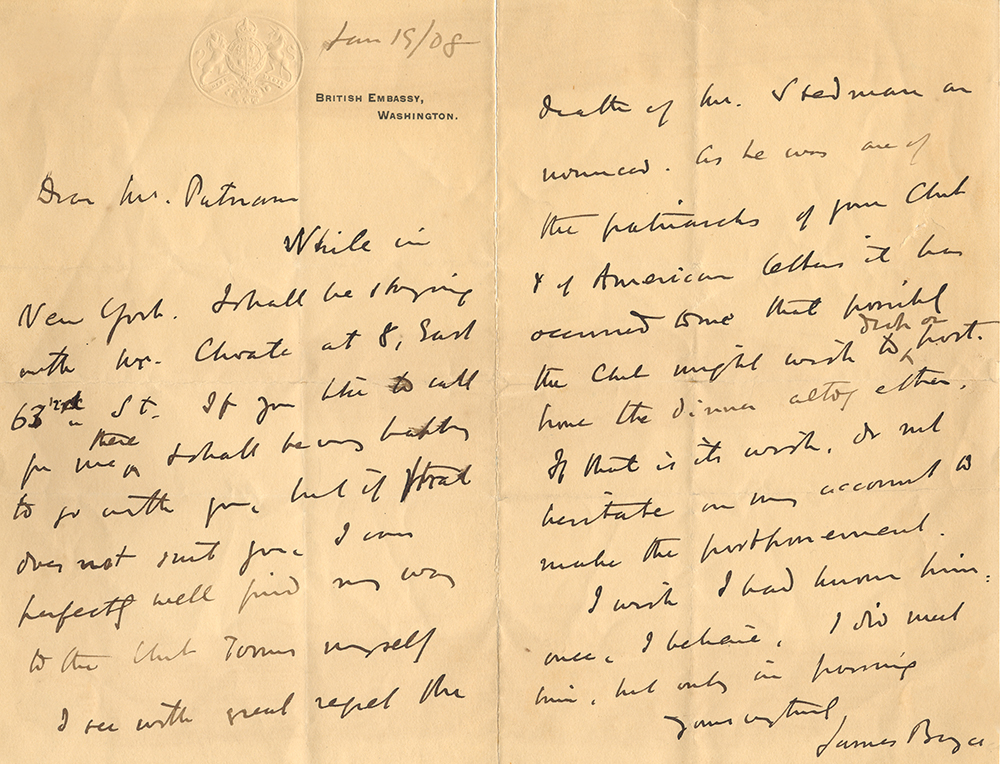 Jan 19/08
BRITISH EMBASSY,
WASHINGTON.
Dear Mr. Putnam
While in
New York. I shall be staying
with Mr. Choate at 8, East
63rd St. If you like to call
for me there I shall be very happy
to go with you, but if that
does not suit you, I can
perfectly well find my way
to the Club rooms myself
I see with great regret the
death of Mr. Stedman an
nounced. As he was one of
the patriarchs of your Club
& of American letters it has
occurred to me that possibly
the Club might wish to drop or post-
pone the dinner altogether.
If that is its wish, do not
hesitate on my account to
make the postponement.
I wish I had known him:
once, I believe, I did meet
him, but only in passing
Yours
James Bryce